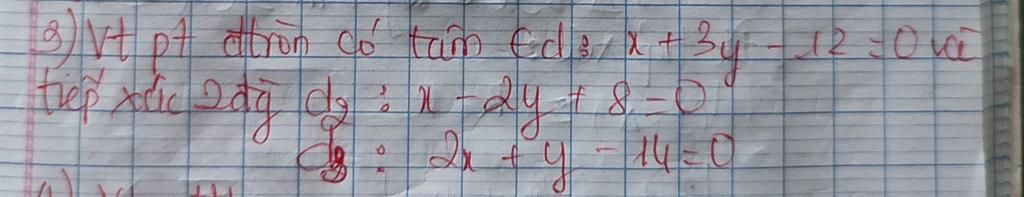 3) Vt pt đtròn có tâm € d : x + 3y - 12 = 0 và
tiếp xúc 2đg d₂ : x - 2y + 8 = 0
d₃ : 2x + y - 14 = 0